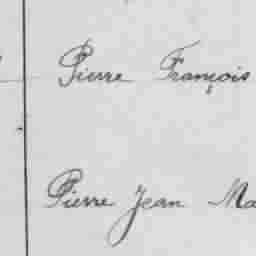 Pierre François
Pierre Jean Ma